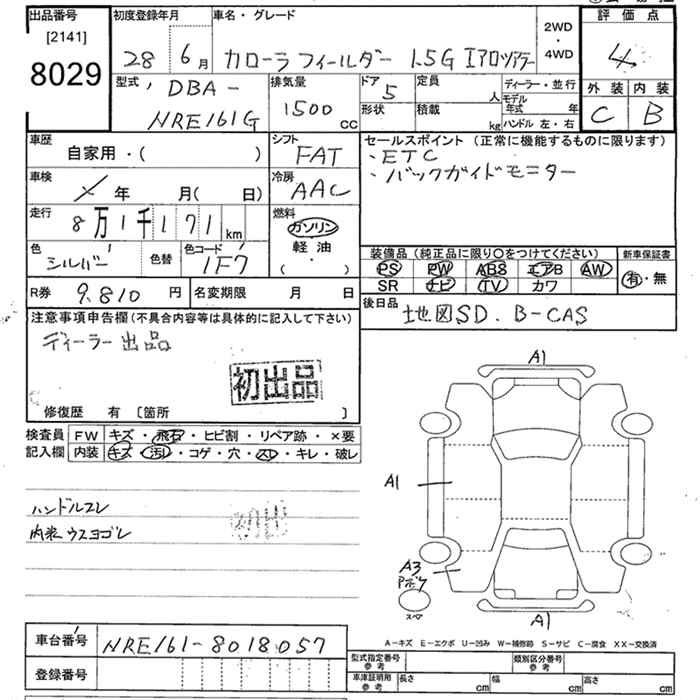 出品番号
[2141]
8029
初度登録年月
28 6月
車名・グレード
カローラフィールダー 1.5G エアロツアラー
2WD
・
4WD
評価点
4
外装 内装
C B
型式
DBA-
NRE161G
排気量
1500
cc
ドア
5
定員
人
形状
積載
kg
ディーラー・並行
モデル
年式 年
ハンドル 左・右
車歴
自家用・( )
シフト
FAT
車検
年 月( 日)
冷房
AAC
走行
8万1千171km
燃料
ガソリン
軽油
( ・ )
色
シルバー
色替
色コード
1F7
セールスポイント (正常に機能するものに限ります)
・ETC
・バックガイドモニター
装備品 (純正品に限り○をつけてください)
新車保証書
PS PW ABS エアB AW
SR ナビ TV カワ
有・無
R券 9,810 円
名変期限 月 日
後日品
地図SD. B-CAS
注意事項申告欄(不具合内容等は具体的に記入して下さい)
ディーラー出品
初出品
修復歴 有 [箇所 ]
検査員
記入欄
FW キズ・飛石・ヒビ割・リペア跡・×要
内装 キズ・汚れ・コゲ・穴・スレ・キレ・破レ
ハンドルスレ
内装ウスヨゴレ
A1
A1
A3
スペア
A1
A-キズ E-エクボ U-凹み W-補修跡 S-サビ C-腐食 XX-交換済
車台番号
NRE161-8018057
登録番号
型式指定番号
参考
類別区分番号
参考
車庫証明用
参考
長さ cm
幅 cm
高さ cm